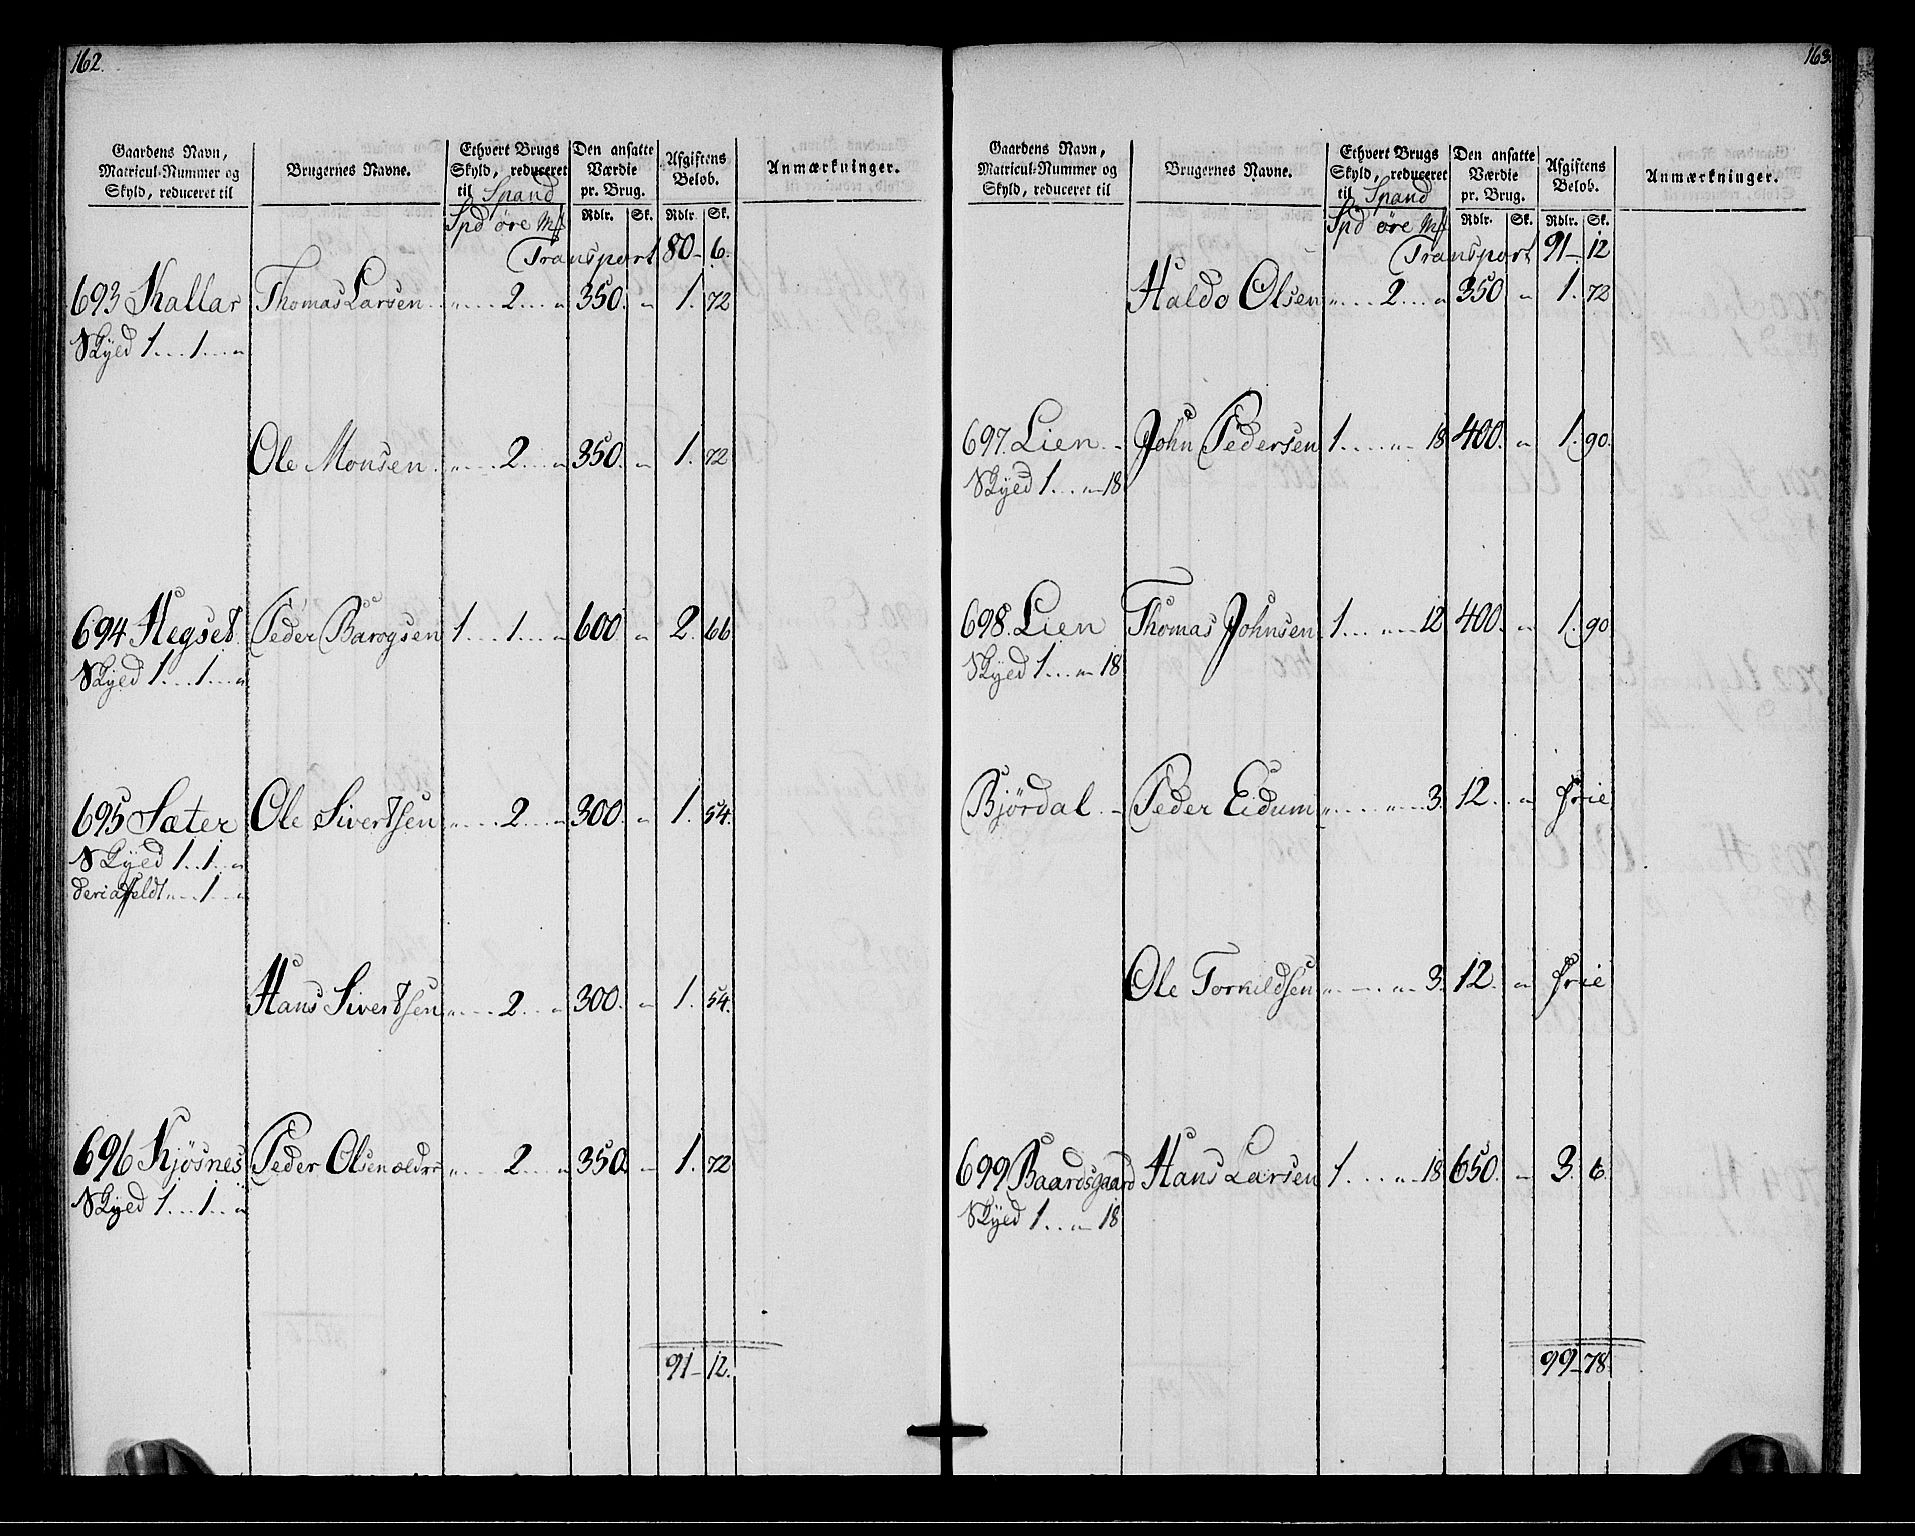 162.
Gaardens Navn, Matricul-Nummer og Skyld, reduceret til | Brugernes Navne. | Ethvert Brugs Skyld, reduceret til Spand | Den ansatte Værdie pr. Brug. | Afgiftens Beløb. | Anmærkninger.
Spd øre Mk | Rdlr. | Sk. | Rdlr. | Sk.
Transport 80 - 6.
693 Kallar Thomas Larsen " 2 " 350. " 1. 72
Skyed 1...1..."
Ole Monsen " 2 " 350. " 1. 72
694 Hegset Peder Baroysen 1...1..." 600 " 2. 66
Skyed 1...1..."
695 Sæter Ole Sivertsen " 2 " 300. " 1. 54.
Skyed 1..1.."
deriaffeldt " 1 "
Hans Sivertsen " 2 " 300. " 1. 54.
696 Kjøsnes Peder Olsen ældre " 2 " 350. " 1. 72
Skyed 1...1.."
91 - 12.
163.
Gaardens Navn, Matricul-Nummer og Skyld, reduceret til | Brugernes Navne. | Ethvert Brugs Skyld, reduceret til Spand | Den ansatte Værdie pr. Brug. | Afgiftens Beløb. | Anmærkninger.
Spd øre Mk | Rdlr. | Sk. | Rdlr. | Sk.
Transport 91 - 12
Haldo Olsen " 2 " 350 " 1. 72
697. Lien John Pedersen 1 " 18 400. " 1. 90.
Skyed 1..." 18
698. Lien Thomas Johnsen 1 " 12 400. " 1. 90
Skyed 1..." 18
Bjørdal Peder Eidum " " 3. 12. " frie
Ole Torkildsen " " 3. 12. " frie
699 Baardsgaard Hans Larsen 1 " 18 650. " 3. 6.
Skyed 1..." 18
99 - 78.